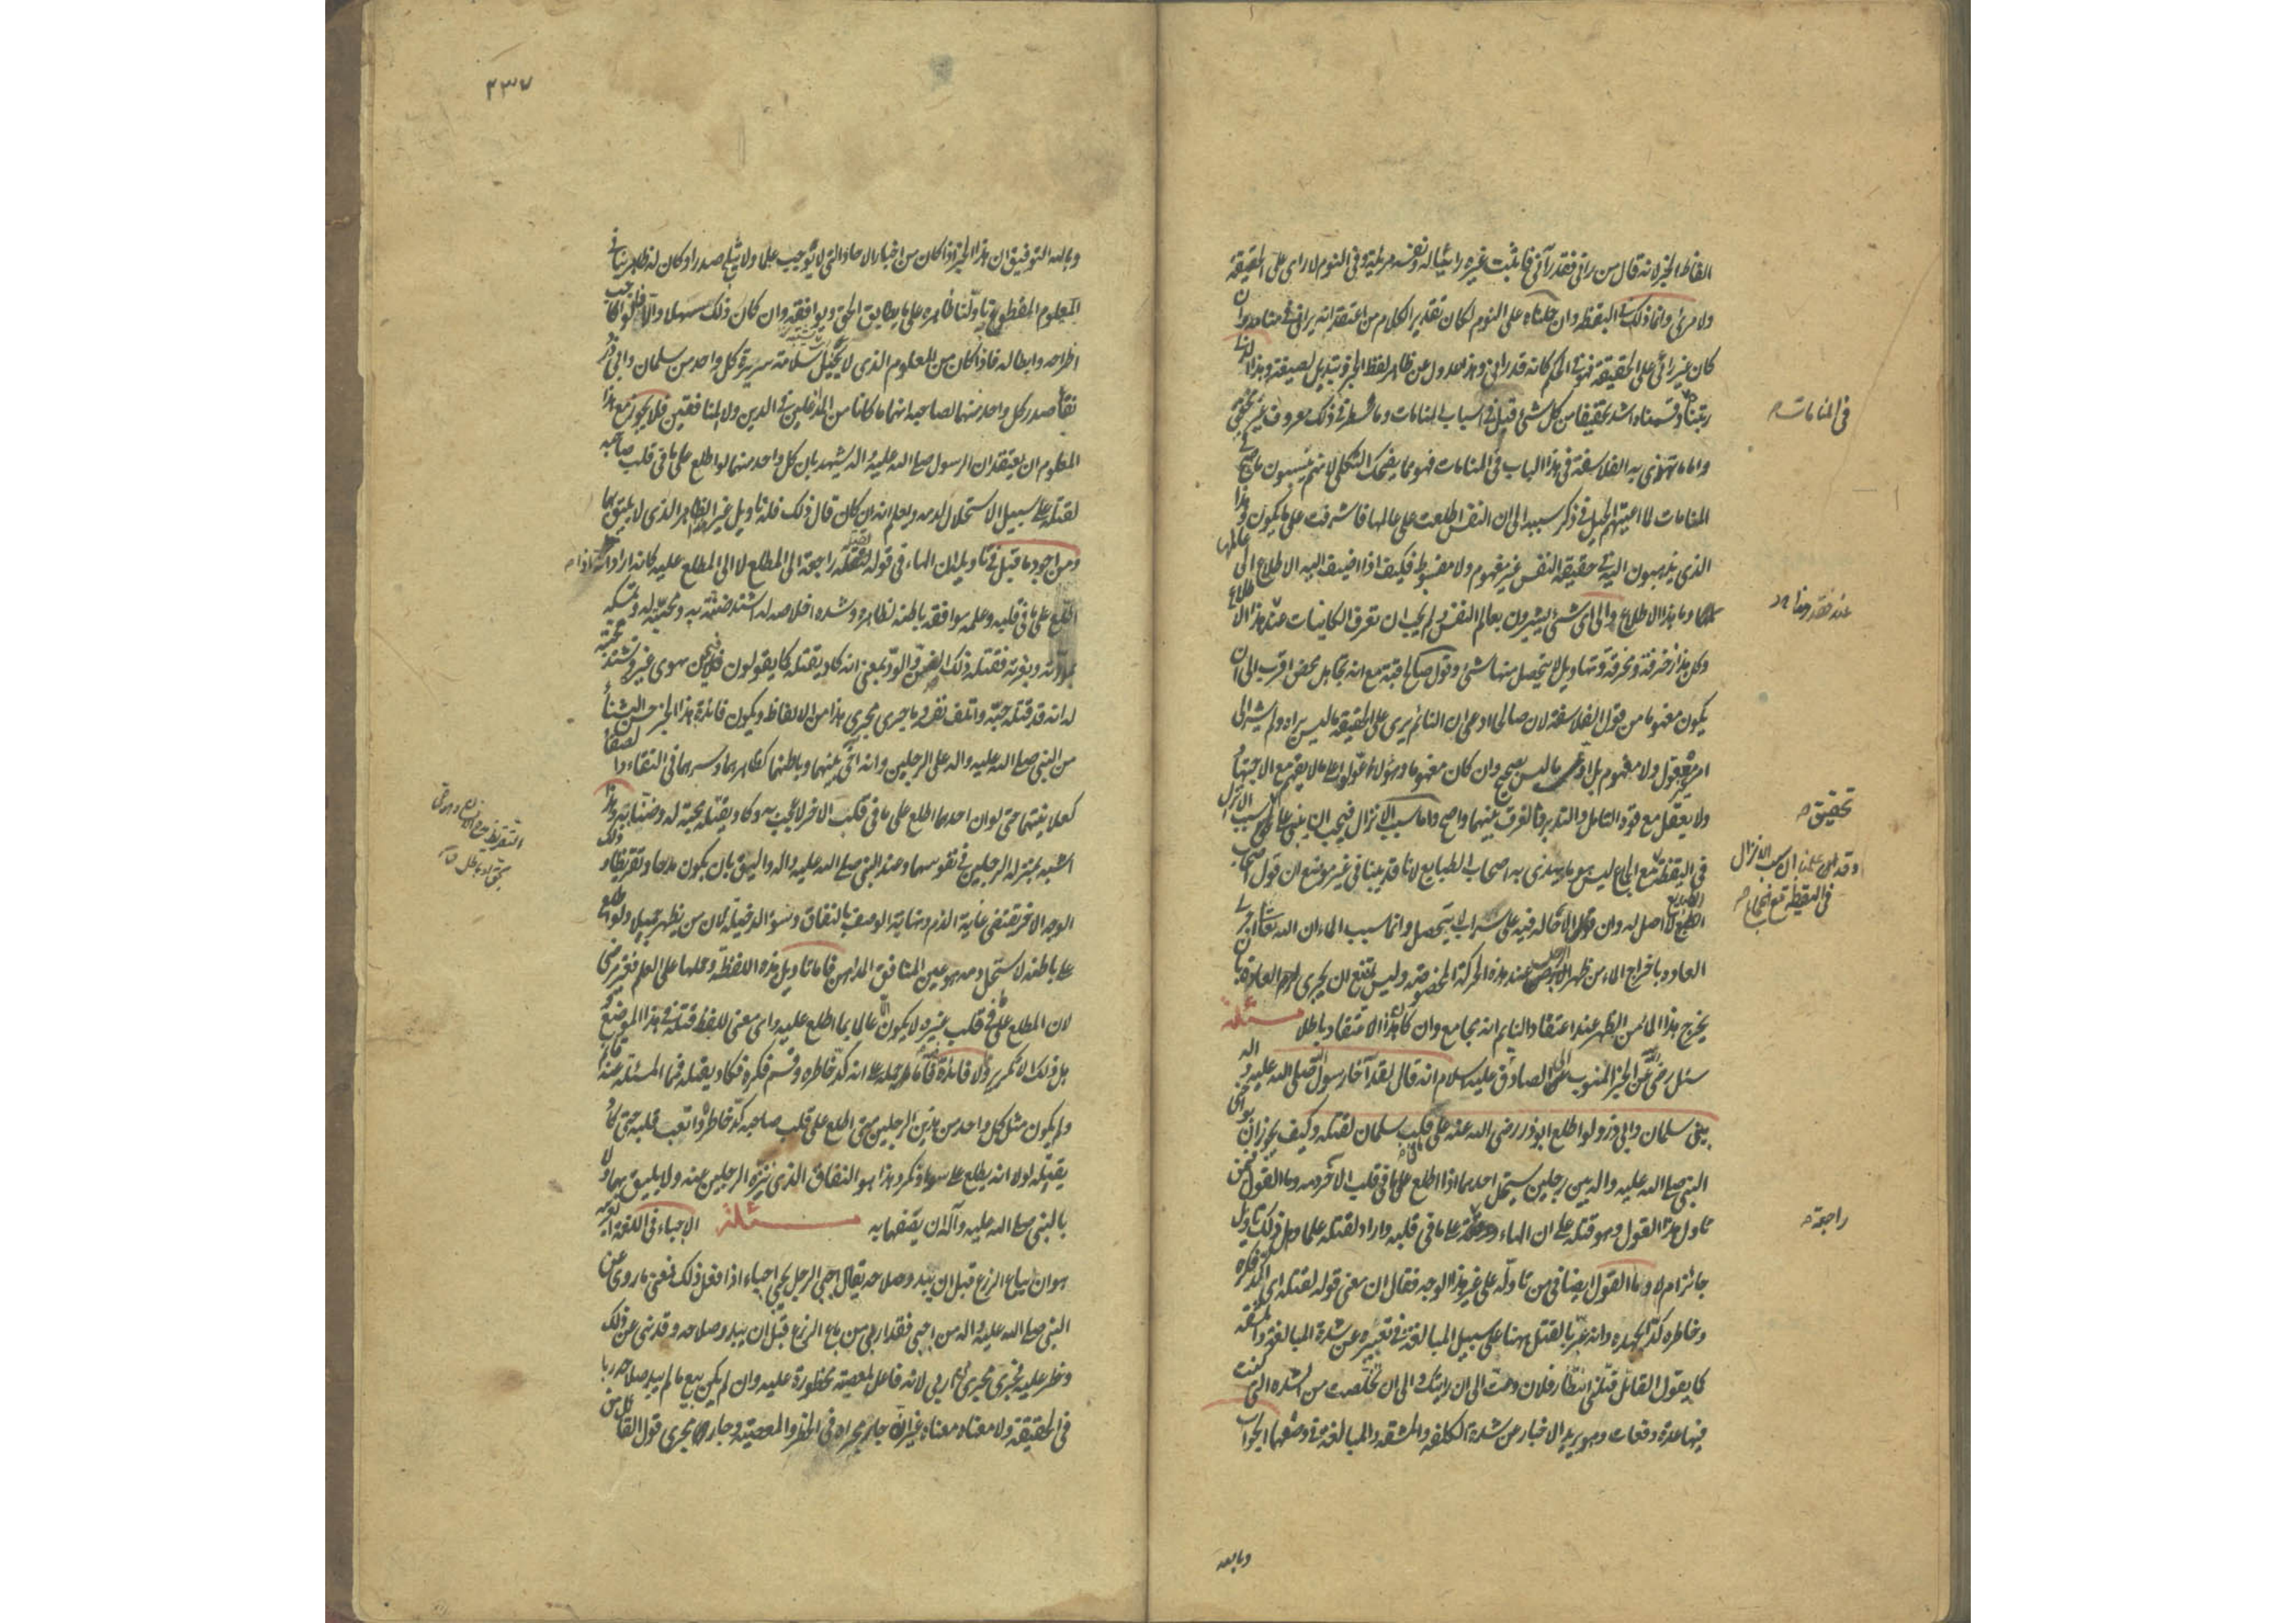 الفاظ الخبر لانه قال من رآنى فقد رآنى فاثبت غيره رائيا له ونفسه مرئية وفى النوم لا رائى على الحقيقة
ولا مرئى وانما ذلك فى اليقظة وان حملناه على النوم لكان تقدير الكلام من اعتقد انه يرانى فى منامه وان
كان غير رائى على الحقيقة فهو فى الحكم كانه قد رآنى وهذا عدول عن ظاهر لفظ الخبر وتبديل لصيغته وهذا الذى
رتبناه وقسمناه اشد تحقيقا من كل شئ قيل فى اسباب المنامات وما سطر فى ذلك معروف غير محقق
فى المنامات
واما ما تهذى به الفلاسفة فى هذا الباب فى المنامات فهو مما يضحك الثكلى لانهم ينسبون ما صح فى
المنامات لما اعيتهم الحيل فى ذكر سببه الى ان النفس اطلعت على عالمها فاشرفت على ما يكون وهذا
الذى يذهبون اليه فى حقيقة النفس غير مفهوم ولا مضبوط فكيف اذا اضيف اليه الاطلاع الى عالمها
وما هذا الاطلاع والى اى شئ يشيرون بعالم النفس ولم يجب ان تعرف الكائنات عند هذا الاطلاع
وكل هذا زخرفة ومخرقة وتهاويل لا يتحصل منها شئ وقول صالح قبة مع انه تجاهل محض اقرب الى ان
يكون مفهوما من قول الفلاسفة لان صالحا ادعى ان النائم يرى على الحقيقة ما ليس يراه ولم يشر الى
امر غير معقول ولا مفهوم بل ادعى ما ليس بصحيح وان كان مفهوما وهؤلاء عولوا على ما لا يفهم مع الاجتهاد
ولا يعقل مع قوة التأمل والتدبر والفرق بينهما واضح واما سبب الانزال فيجب ان يبنى على شئ تحقيق سبب الانزال
تحقيق
فى اليقظة مع الجماع ليس هو ما يهذى به اصحاب الطبايع لانا قد بينا فى غير موضع ان قول اصحاب
الطبايع لا اصل له وان الاحالة فيه على سراب لا يتحصل وانما سبب الماء ان الله تعالى اجرى
العادة باخراج الماء من ظهر الرجل عند هذه الحركة المخصوصة وليس يمتنع ان يجرى الله العادة بان
يخرج هذا الماء من الظهر عند اعتقاد النائم انه يجامع وان كان هذا الاعتقاد باطلا مسئلة
سئل رضى الله عنه عن الخبر المنسوب الى الصادق عليه السلام انه قال لقد آخا رسول الله صلى الله عليه واله
بين سلمان وابى ذر ولو اطلع ابوذر رضى الله عنه على ما فى قلب سلمان لقتله وكيف يجوز ان يواخى
النبى صلى الله عليه واله بين رجلين يستحل احدهما اذا اطلع على ما فى قلب الآخر دمه وما القول فيمن
تاول هذا القول وهو قتله على ان الهاء راجعة على ما فى قلبه واراد لقتله علما وهل ذلك تاويل
راجعة
جائز ام لا وما القول ايضا فى من تاوله على غير هذا الوجه فقال ان معنى قوله لقتله اى لكد فكره
وخاطره كدا يجهده وانه عبر بالقتل ههنا على سبيل المبالغة فى تعبيره عن شدة المبالغة والمشقة
كما يقول القائل قتلنى انتظار فلان ومت الى ان رايتك والى ان تخلصت من الشدة التى كنت
فيها عدة دفعات وهو يريد الاخبار عن شدة الكلفة والمشقة والمبالغة فى وصفهما الجواب
وبالله
٤٣٧
وبالله التوفيق ان هذا الخبر اذا كان من اخبار الاحاد التى لا توجب علما ولا تثلج صدرا وكان له ظاهر ينافى
المعلوم المقطوع تاولنا ظاهره على ما يطابق الحق ويوافقه وان كان ذلك سهلا والا فالواجب
اطراحه وابطاله فاذا كان من المعلوم الذى لا يختل سلامة سريرة كل واحد من سلمان وابى ذر
نقاء صدر كل واحد منهما لصاحبه انهما ما كانا من المدغلين فى الدين ولا المنافقين فلا يجوز مع هذا
المعلوم ان يعتقد ان الرسول صلى الله عليه واله يشهد بان كل واحد منهما لو اطلع على ما فى قلب صاحبه
لقتله على سبيل الاستحلال لدمه ويعلم انه ان كان قال ذلك فله تاويل غير الظاهر الذى لا يليق بهما
ومن اجود ما قيل فى تاويله ان الهاء فى قوله لقتله راجعة الى المطلع لا الى المطلع عليه كانه اراد انه اذا
اطلع على ما فى قلبه وعلم موافقة باطنه لظاهره وشدة اخلاصه له اشتد ضنه به ومحبته له وتمسكه
بمودته ونصرته فقتله ذلك الضن والود بمعنى انه كاد يقتله كما يقولون فلان يهوى غيره وتشتد محبته
له انه قد قتله حبه واتلف نفسه وما جرى مجرى هذا من الالفاظ ويكون فائدة هذا الخبر حسن الثناء
من النبى صلى الله عليه واله على الرجلين وانه آخى بينهما وباطنهما كظاهرهما وسرهما فى النقاء والصفاء
كعلانيتهما حتى لو ان احدهما اطلع على ما فى قلب الاخر لاعجب به وكاد يقتله محبة له وضنا به وهذا
اشبه بمنزلة الرجلين فى نفوسهما وعند النبى صلى الله عليه واله واليق بان يكون مدحا وتقريظا وذلك
الوجه الاخر يقتضى غاية الذم ونهاية الوصف بالنفاق وسوء الدخيلة لان من يظهر جميلا ولو اطلع
على باطنه لاستحل دمه هو عين المنافق المداهن فاما تاويل هذه اللفظة وحملها على العلم فغير مرضى
لان المطلع على ما فى قلب غيره لا يكون الا عالما بما اطلع عليه واى معنى للفظ قتله فى هذا الموضع
بل ذلك الا تكرير ولا فائدة فيه فاما حمله على انه كد خاطره وقسم فكره فكاد يقتله فما المسئلة عنه قائمة
ولم يكون مثل كل واحد من هذين الرجلين متى اطلع على قلب صاحبه كد خاطره واتعب قلبه حتى كاد
يقتله لولا انه يطلع على سوء ومكر وهذا هو النفاق الذى ننزه الرجلين عنه ولا يليق بهما ولا
بالنبى صلى الله عليه وآله ان يصفهما به مسئلة الاجباء فى اللغة
هو ان يباع الزرع قبل ان يبدو صلاحه يقال اجبى الرجل يجبى اجباء اذا فعل ذلك فمعنى ما روى عن
النبى صلى الله عليه واله من اجبى فقد اربى من باع الزرع قبل ان يبدو صلاحه وقد نهى عن ذلك
وحظر عليه فجرى مجرى من اربى لانه فاعل لمعصية محظورة عليه وان لم يكن بيع ما لم يبد صلاحه ربا
فى الحقيقة ولا معناه معناه غير انه جار مجراه فى الحظر والمعصية وجار مجرى قول القائل من